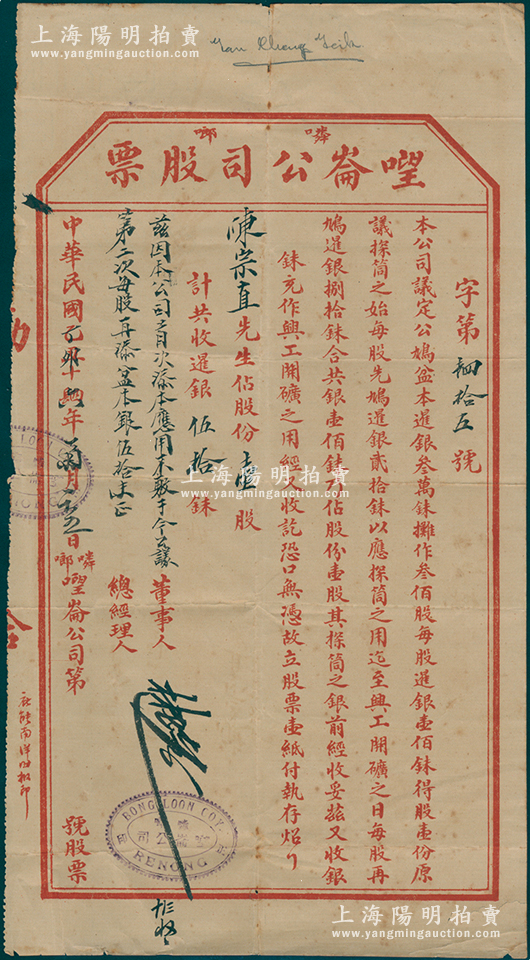 上海陽明拍賣
www.yangmingauction.com
Tan Kheng Teik
嘟 嗱
嘊崙公司股票
字第 肆拾五 號
本公司議定公鳩盆本暹銀叁萬銖攤作叁佰股每股暹銀壹佰銖得股壹份原
議探筒之始每股先鳩暹銀貳拾銖以應探筒之用迄至興工開礦之日每股再
鳩暹銀捌拾銖合共銀壹佰銖 佔股份壹股其探筒之銀前經收妥茲又收銀
銖充作興工開礦之用經入收訖恐口無憑故立股票壹紙付執存炤
陳崇直先生佔股份壹股
計共收暹銀 伍拾 銖
茲因本公司首次添本應用不敷于今公議
第二次每股再添盆本銀伍拾銖正
董事人
總經理人
中華民國 十四年 月 日 公司第 號股票
BONG LOON COY
公司
RENONG
上海陽明拍賣
www.yangmingauction.com
上海陽明拍賣
www.yangmingauction.com